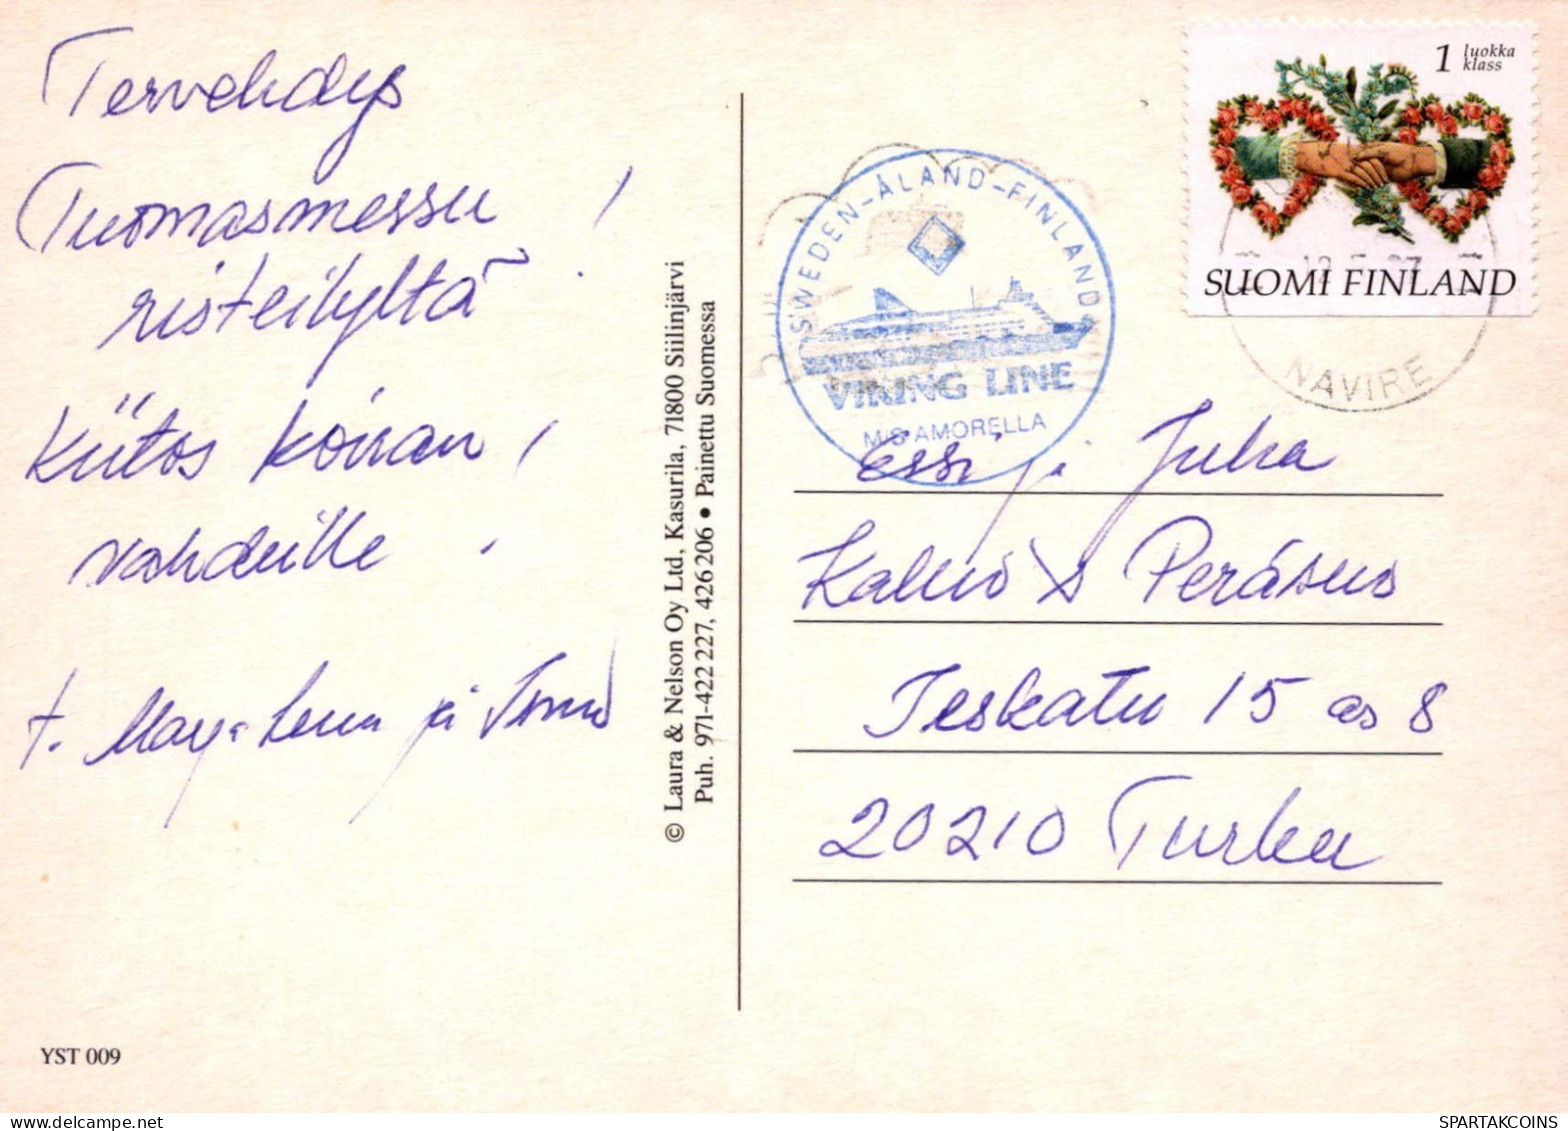 Tervehdys
Tuomasmessu
risteilyltä !
Kiitos koiran
vahdeille !
t. Marja-Leena ja
© Laura & Nelson Oy Ltd, Kasurila, 71800 Siilinjärvi
Puh. 971-422 227, 426 206 • Painettu Suomessa
YST 009
SWEDEN-ÅLAND-FINLAND
VIKING LINE
M/S AMORELLA
1 luokka
klass
SUOMI FINLAND
NAVIRE
Essi ja Juha
Kallio
Teskatu 15 as 8
20210 Turku
SPARTAKCOINS